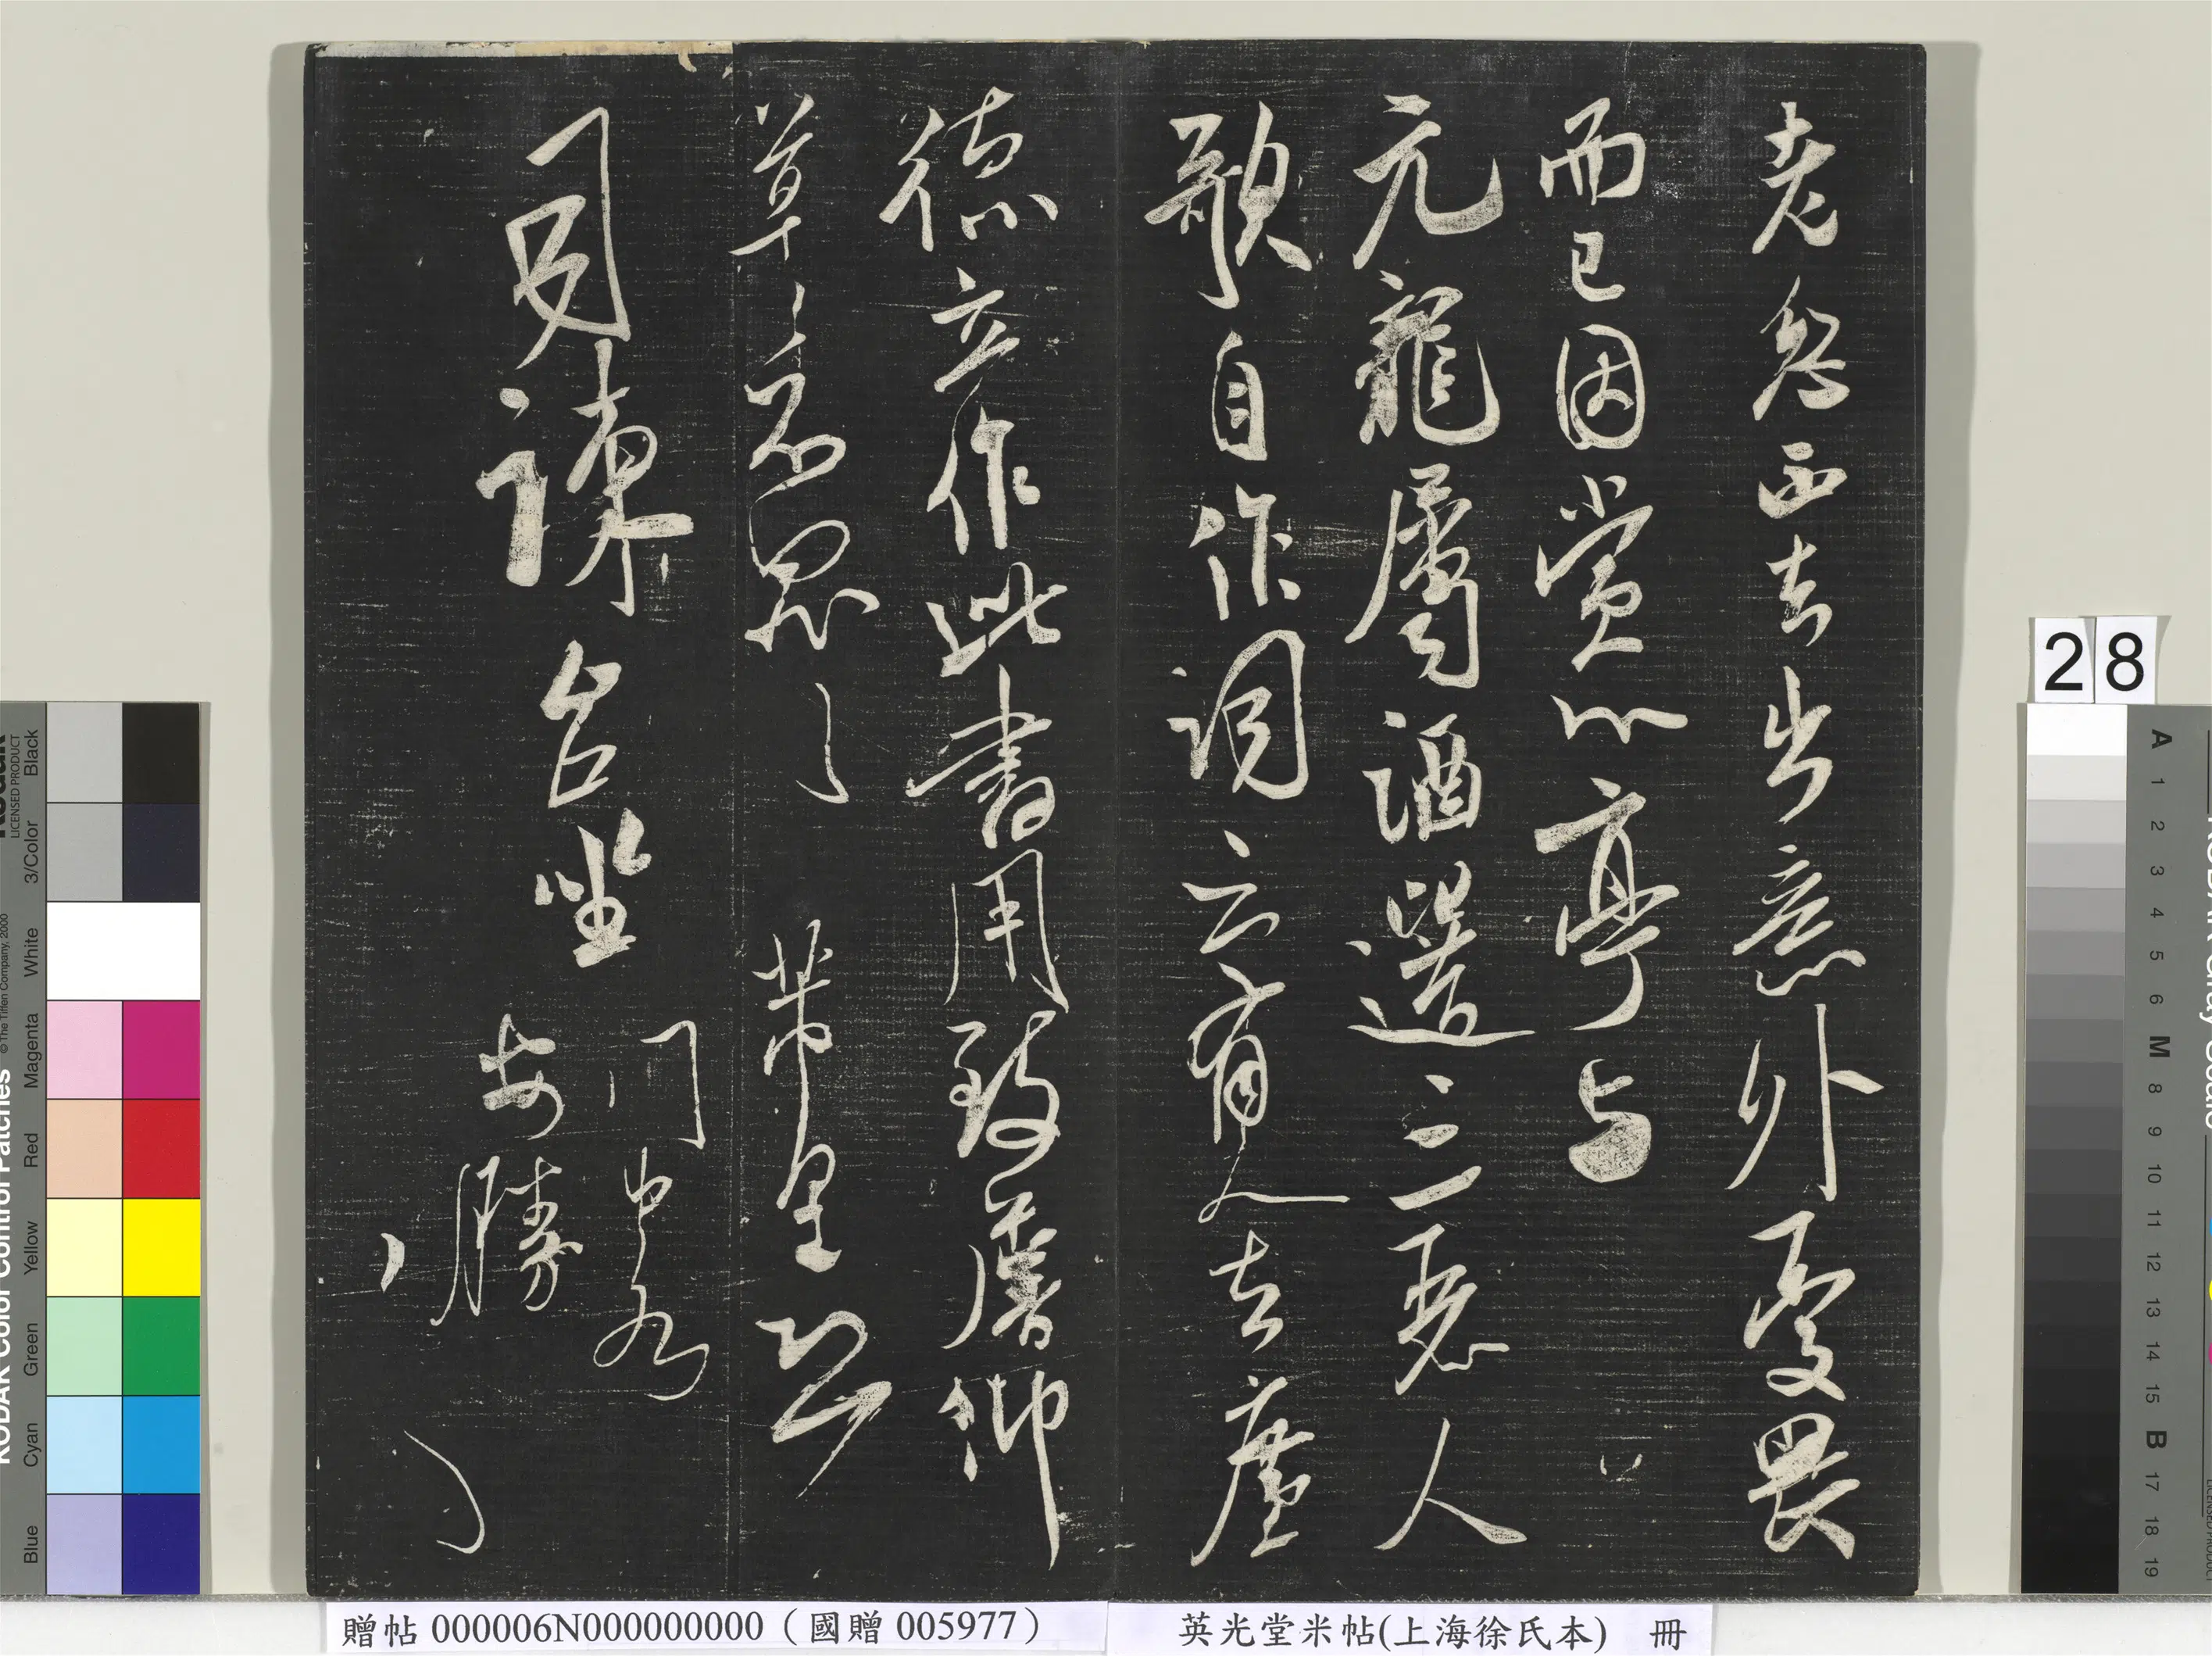 老忽西去出意外憂畏
而已因賞心亭与
元龍屬酒遣二三惡人
歌自作詞云有人去塵
德立作此書用致虛仰
草々不思
帶星公
司諫台坐
門中各
安勝
28
贈帖 000006N000000000（國贈 005977）
英光堂米帖(上海徐氏本) 冊
KODAK Color Control Patches
© The Tiffen Company, 2000
LICENSED PRODUCT
Blue Cyan Green Yellow Red Magenta White 3/Color Black
A 1 2 3 4 5 6 M 8 9 10 11 12 13 14 15 B 17 18 19